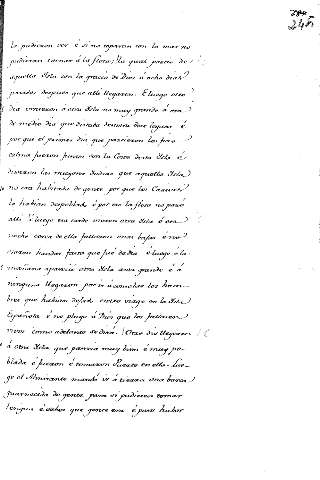 245
lo pudieron ver é si no toparan con la mar no
pudieran tornar á la flota; la qual partio de
aquella Isla con la gracia de Dios á ocho dias
pasados despues que alli llegaron. E luego otro
dia vinieron á otra Isla no muy grande é era
de medio dia que
por que el primer dia que
fueron fuera con la Costa desta Isla é
dixeron las mugeres Indias que aquella Isla
no era habitada de gente por que los Caribes
la habian despoblado é por eso la flota no paró
alli é luego esa tarde vieron otra Isla é esa
noche cerca de ella fallaron unos baxos é no
osaron andar fasta que fué de dia é luego á la
mañana aparecio otra Isla arto grande é á
ninguna llegaron por ir á consolar los hom-
bres que habian dexado
Española é no plugo á Dios que los fallasen
vivos como adelante se dirá. Otro dia llegaron
á otra Isla que parecia muy bien é muy po-
blada é fueron é tomaron Puerto en ella. Lue-
go el Almirante mandó ir á tierra una barca
guarnecida de gente para si pudieran tomar
lengua é saber que gente era é para haber